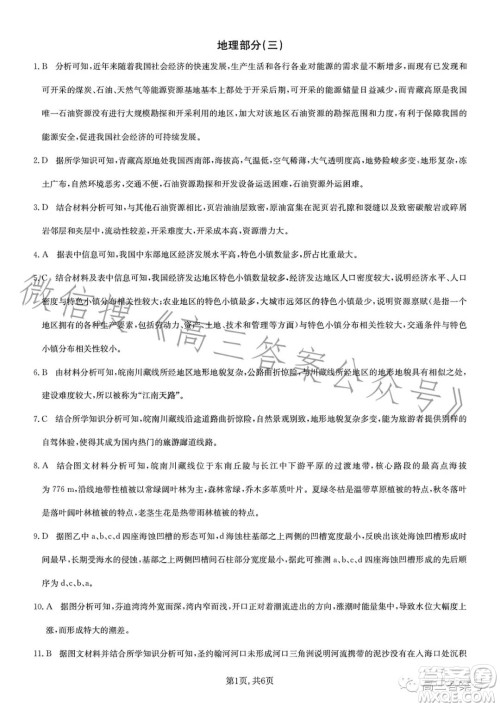 地理部分(三)
1. B 分析可知，近年来随着我国社会经济的快速发展，生产生活和各行各业对能源的需求不断增多，而现有已发现和
可开采的煤炭、石油、天然气等能源资源基地大部分都处于开采后期，可开采的资源储量已经不多，而青藏高原是我国
唯一石油资源没有进行大规模勘探和开采利用的地区，加大该区域石油资源的勘探和开发力度，有利于保障我国的
能源安全，促进我国社会经济的可持续发展。
2. D 据所学知识可知，青藏高原地处我国西南部，海拔高，气温低，空气稀薄，生态环境脆弱，地势险峻多变，地形复杂，冻
土广布，自然环境恶劣，交通状况较差，石油资源勘探和开发设备运送困难，石油资源外运困难。
3. D 结合材料分析可知，与常规石油资源相比，页岩油油层巨厚，原油富集在泥页岩孔隙和裂缝以及致密碳酸岩或碎屑
岩邻层中，渗透率低，流动性较差，开采难度大，开采成本高。
4. A 据表中信息可知，我国中东部地区经济发展水平高，特色小镇数量最多，占比最大。
5. C 结合材料及表中信息可知，我国经济发达地区特色小镇数量较多，经济发达地区人口密度较大，说明我国人口密度
与特色小镇分布相关性较大；农业地区的特色小镇最多，大城市远郊区的特色小镇最少，说明资源禀赋(即由一个
地区拥有的各种生产要素，包括劳动力、资本、土地、技术、管理等)与特色小镇分布相关性较大；地形起伏与特色小
镇分布相关性较小。
6. B 由材料分析可知，皖南川藏线所经地区地形地貌复杂，公路曲折惊险，与川藏线景观相似，且该地位于江南地区，
建设难度大，所以被称为“江南天路”。
7. C 据所学知识分析可知，皖南川藏线沿途道路曲折惊险，自然景观别致，地形地貌复杂多变，是一条欣赏和体验并存的
自驾体验线，使其成为国内热门的旅游廊道线路。
8. A 结合图文材料分析可知，皖南川藏线位于东南丘陵与长江中下游平原的过渡地带，核心路段的最高点海拔
为 776 m，沿线地带性植被以常绿阔叶林为主，花香四季常在，乔木多革质叶片。夏绿冬枯是温带草原植被特点，在落
叶阔叶林植被特点，老茎生花是热带雨林植被特点。
9. D 图乙中 a、b、c、d 四座海蚀凹槽的形态可知，a、b、c、d 四座海蚀凹槽的凹槽形态越复杂，说明海蚀凹槽形成时
间最早，长期受海水侵蚀，石柱基底之上两侧凹槽间石柱部分宽度最小，因此 a、b、c、d 四座海蚀凹槽形成的先后顺序
为 d、c、b、a。
10. A 据图分析可知，芬迪湾湾外宽而深，湾内窄而浅，开口对着潮流进出的方向，涨潮时能形成大量涌水，容易
形成特大的潮差。
11. B 据图文材料并结合所学知识分析可知，圣约翰河河口未形成河口三角洲说明河流携带的泥沙没有在入海口处沉积
第1页，共6页
微信搜《高三答案公众号》
高三答案号